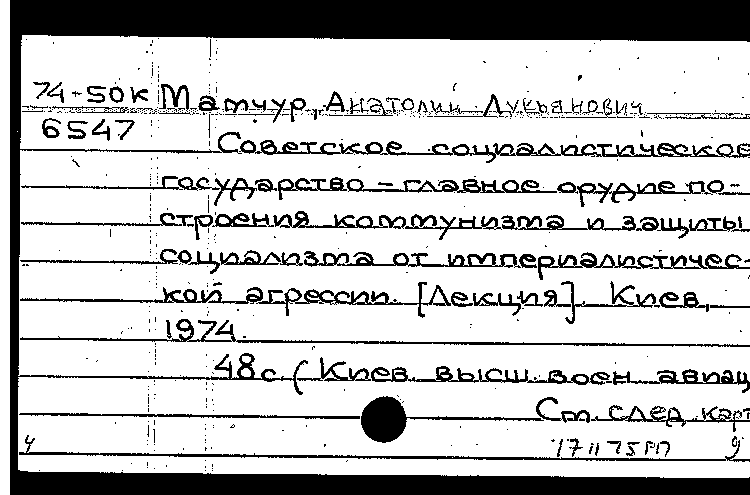 74-50к Матчур, Анатолий Лукьянович
6547
Советское социалистическое
государство – главное орудие по-
строения коммунизма и защиты
социализма от империалистичес-
кой агрессии. [Лекция]. Киев,
1974.
48с. (Киев. высш. воен. авиац
См. след. карт
4
17 II 75